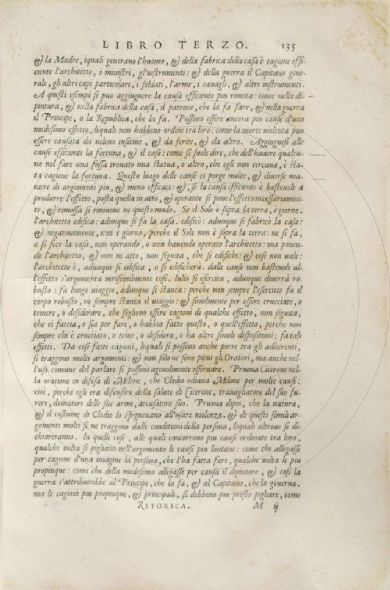 LIBRO TERZO. 135
& la Madre, iquali generano l'huomo, & della fabrica della casa è cagione effi-
ciente l'architetto, i ministri, gl'instrumenti: & della guerra il Capitano gene-
rale, gli altri capi particolari, i soldati, l'arme, i cauagli, & altri instrumenti.
A questi esempi si puo aggiugnere la causa efficiente piu rimota: come nella di-
pintura, & nella fabrica della casa, il patrone, che la fa fare, & nella guerra
il Principe, o la Republica, che la fa. Possono essere ancora piu cause d'uno
medesimo effetto, lequali non habbiano ordine tra loro: come la morte uiolenta puo
essere causata da ueleno insieme, & da ferite, & da altro. Aggiugnesi alle
cause efficienti la fortuna, & il caso: come si suole dire, che dell'hauere qualcu-
no nel fare una fossa trouato una statua, o altro, che egli non cercaua, è sta-
ta cagione la fortuna. Questo luogo delle cause ci porge molte, & diuerse ma-
niere di argomenti piu, & meno efficaci: &, se la causa efficiente è basteuole a
produrre l'effetto, posta quella in atto, & operante si pone l'effetto necessariamen-
te, & remossa si rimuoue in questo modo. Se il Sole è sopra la terra, è giorno.
l'architetto edifica: adunque si fa la casa. edificò: adunque si fabricò la casa:
& negatiuamente, non è giorno, perche il Sole non è sopra la terra: ne si fa,
o si fece la casa, non operando, o non hauendo operato l'architetto: ma ponen-
do l'architetto, & non in atto, non seguita, che si edifichi: & cosi non uale:
l'architetto è, adunque si edifica, o si edificherà. dalle cause non bastenoli al-
l'effetto s'argomenta uerisimilmente cosi, Iulio si esercita, adunque diuerrà ro-
busto: fa lungo uiaggio, adunque si stanca: perche non sempre l'esercitio fa il
corpo robusto, ne sempre stanca il uiaggio: & similmente per essere crucciato, o
temere, o desiderare, che sogliono essere cagioni di qualche effetto, non seguita,
che ei faccia, o sia per fare, o habbia fatto questo, o quell'effetto, perche non
sempre chi è crucciato, o teme, o desidera, o ha altre simili dispositioni, fa tali
effetti. Da cosi fatte cagioni, lequali si possono anche porre tra gli adherenti,
si traggono molti argomenti: & non solo ne sono pieni gli Oratori, ma anche nel-
l'uso comune del parlare si possono ageuolmente osseruare. Pruoua Cicerone nel-
la oratione in difesa di Milone, che Clodio odiaua Milone per molte cause:
cioè, perche egli era difensore della salute di Cicerone, trauagliatore del suo fu-
rore, domatore delle sue arme, accusatore suo. Pruoua dipoi, che la natura,
& il costume di Clodio lo spigneuano all'usare uiolenza. & di questi simili ar-
gomenti molti se ne traggono dalle conditioni della persona, lequali altroue si di-
chiareranno. In quelli casi, alli quali concorrono piu cause ordinate tra loro,
qualche uolta si pigliano nell'argomento le cause piu lontane: come chi allegasse
per cagione d'una imagine la persona, che l'ha fatta fare, qualche uolta le piu
propinque: come chi della medesima allegasse per causa il dipintore, & cosi la
guerra s'attribuirebbe al Principe, che la fa, & al Capitano, che la gouerna.
ma le cagioni piu propinque, & principali, si debbono piu presto pigliare, come
RETORICA. M ij